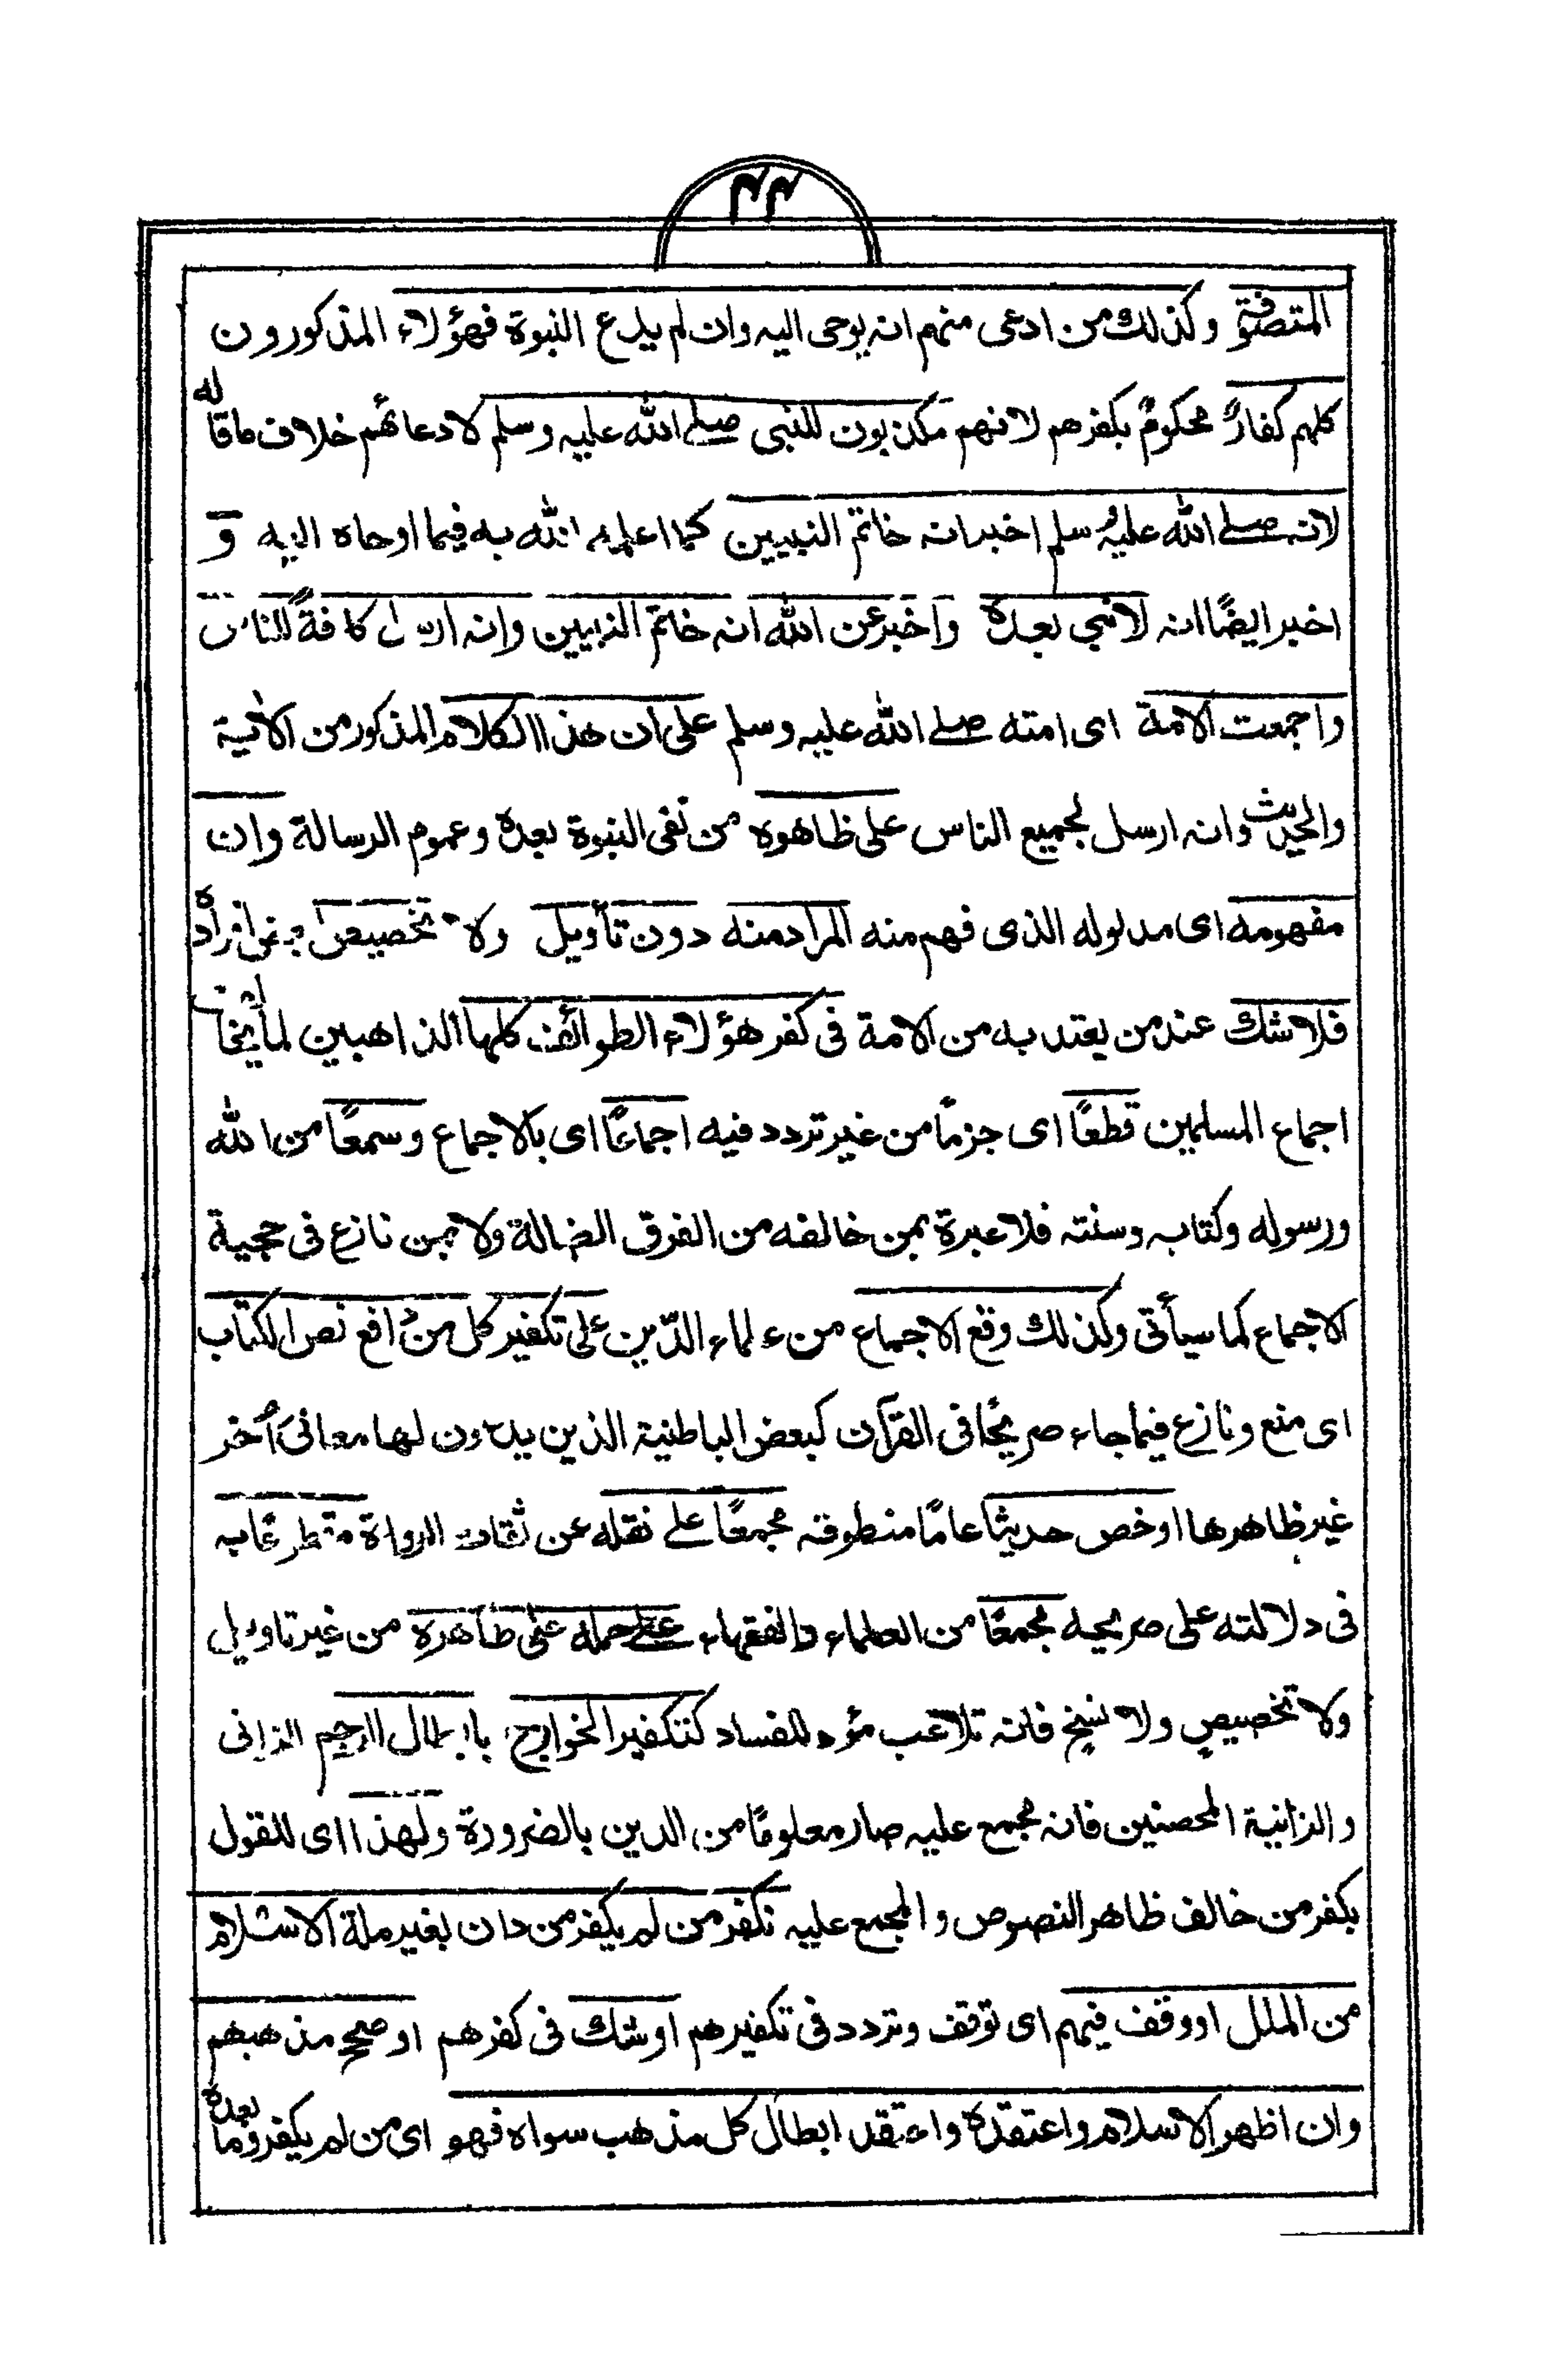 ٤٤
المتصوفة وكذلك من ادعى منهم انه يوحى اليه وان لم يدع النبوة فهؤلاء المذكورون
كلهم كفارٌ محكومٌ بكفرهم لانهم مكذبون للنبى صلے الله عليه وسلم لادعائهم خلاف ما قاله
لانه صلے الله عليه وسلم اخبر انه خاتم النبيين كما اعلمه الله به فيما اوحاه اليه و
اخبر ايضًا انه لا نبي بعده واخبر عن الله انه خاتم النبيين وانه ارسل كافةً للناس
واجمعت الامة اى امته صلے الله عليه وسلم على ان هذا الكلام المذكور من الآية
والحديث وانه ارسل لجميع الناس على ظاهره من نفى النبوة بعده وعموم الرسالة وان
مفهومه اى مدلوله الذى فهم منه المراد منه دون تأويل ولا تخصيص افراده
فلا شك عند من يعتد به من الامة فى كفر هؤلاء الطوائف كلها الذاهبين لما يخالف
اجماع المسلمين قطعًا اى جزمًا من غير تردد فيه اجماعًا اى بالاجماع وسمعًا من الله
ورسوله وكتابه وسنته فلا عبرة بمن خالفه من الفرق الضالة ولا بمن نازع فى حجية
الاجماع كما سيأتى وكذلك وقع الاجماع من علماء الدّين على تكفير كل من دافع نص الكتاب
اى منع ونازع فيما جاء صريحًا فى القرآن كبعض الباطنية الذين يدعون لها معانى اُخر
غير ظاهرها او خص حديثًا عامًا منطوقه مجمعًا على نقله عن ثقات الرواة مقطوعًا به
فى دلالته على صريحه مجمعًا من العلماء والفقهاء علے حمله على ظاهره من غير تاويل
ولا تخصيصٍ ولا نسخٍ فانه تلاعب مؤد للفساد كتكفير الخوارج بابطال الرجم الزانى
والزانية المحصنين فانه مجمع عليه صار معلومًا من الدين بالضرورة ولهذا اى للقول
بكفر من خالف ظاهر النصوص والمجمع عليه نكفر من لم يكفر من دان بغير ملة الاسلام
من الملل او وقف فيهم اى توقف وتردد فى تكفيرهم او شك فى كفرهم او صحح مذهبهم
وان اظهر الاسلام واعتقده واعتقد ابطال كل مذهب سواه فهو اى من لم يكفر وما بعده